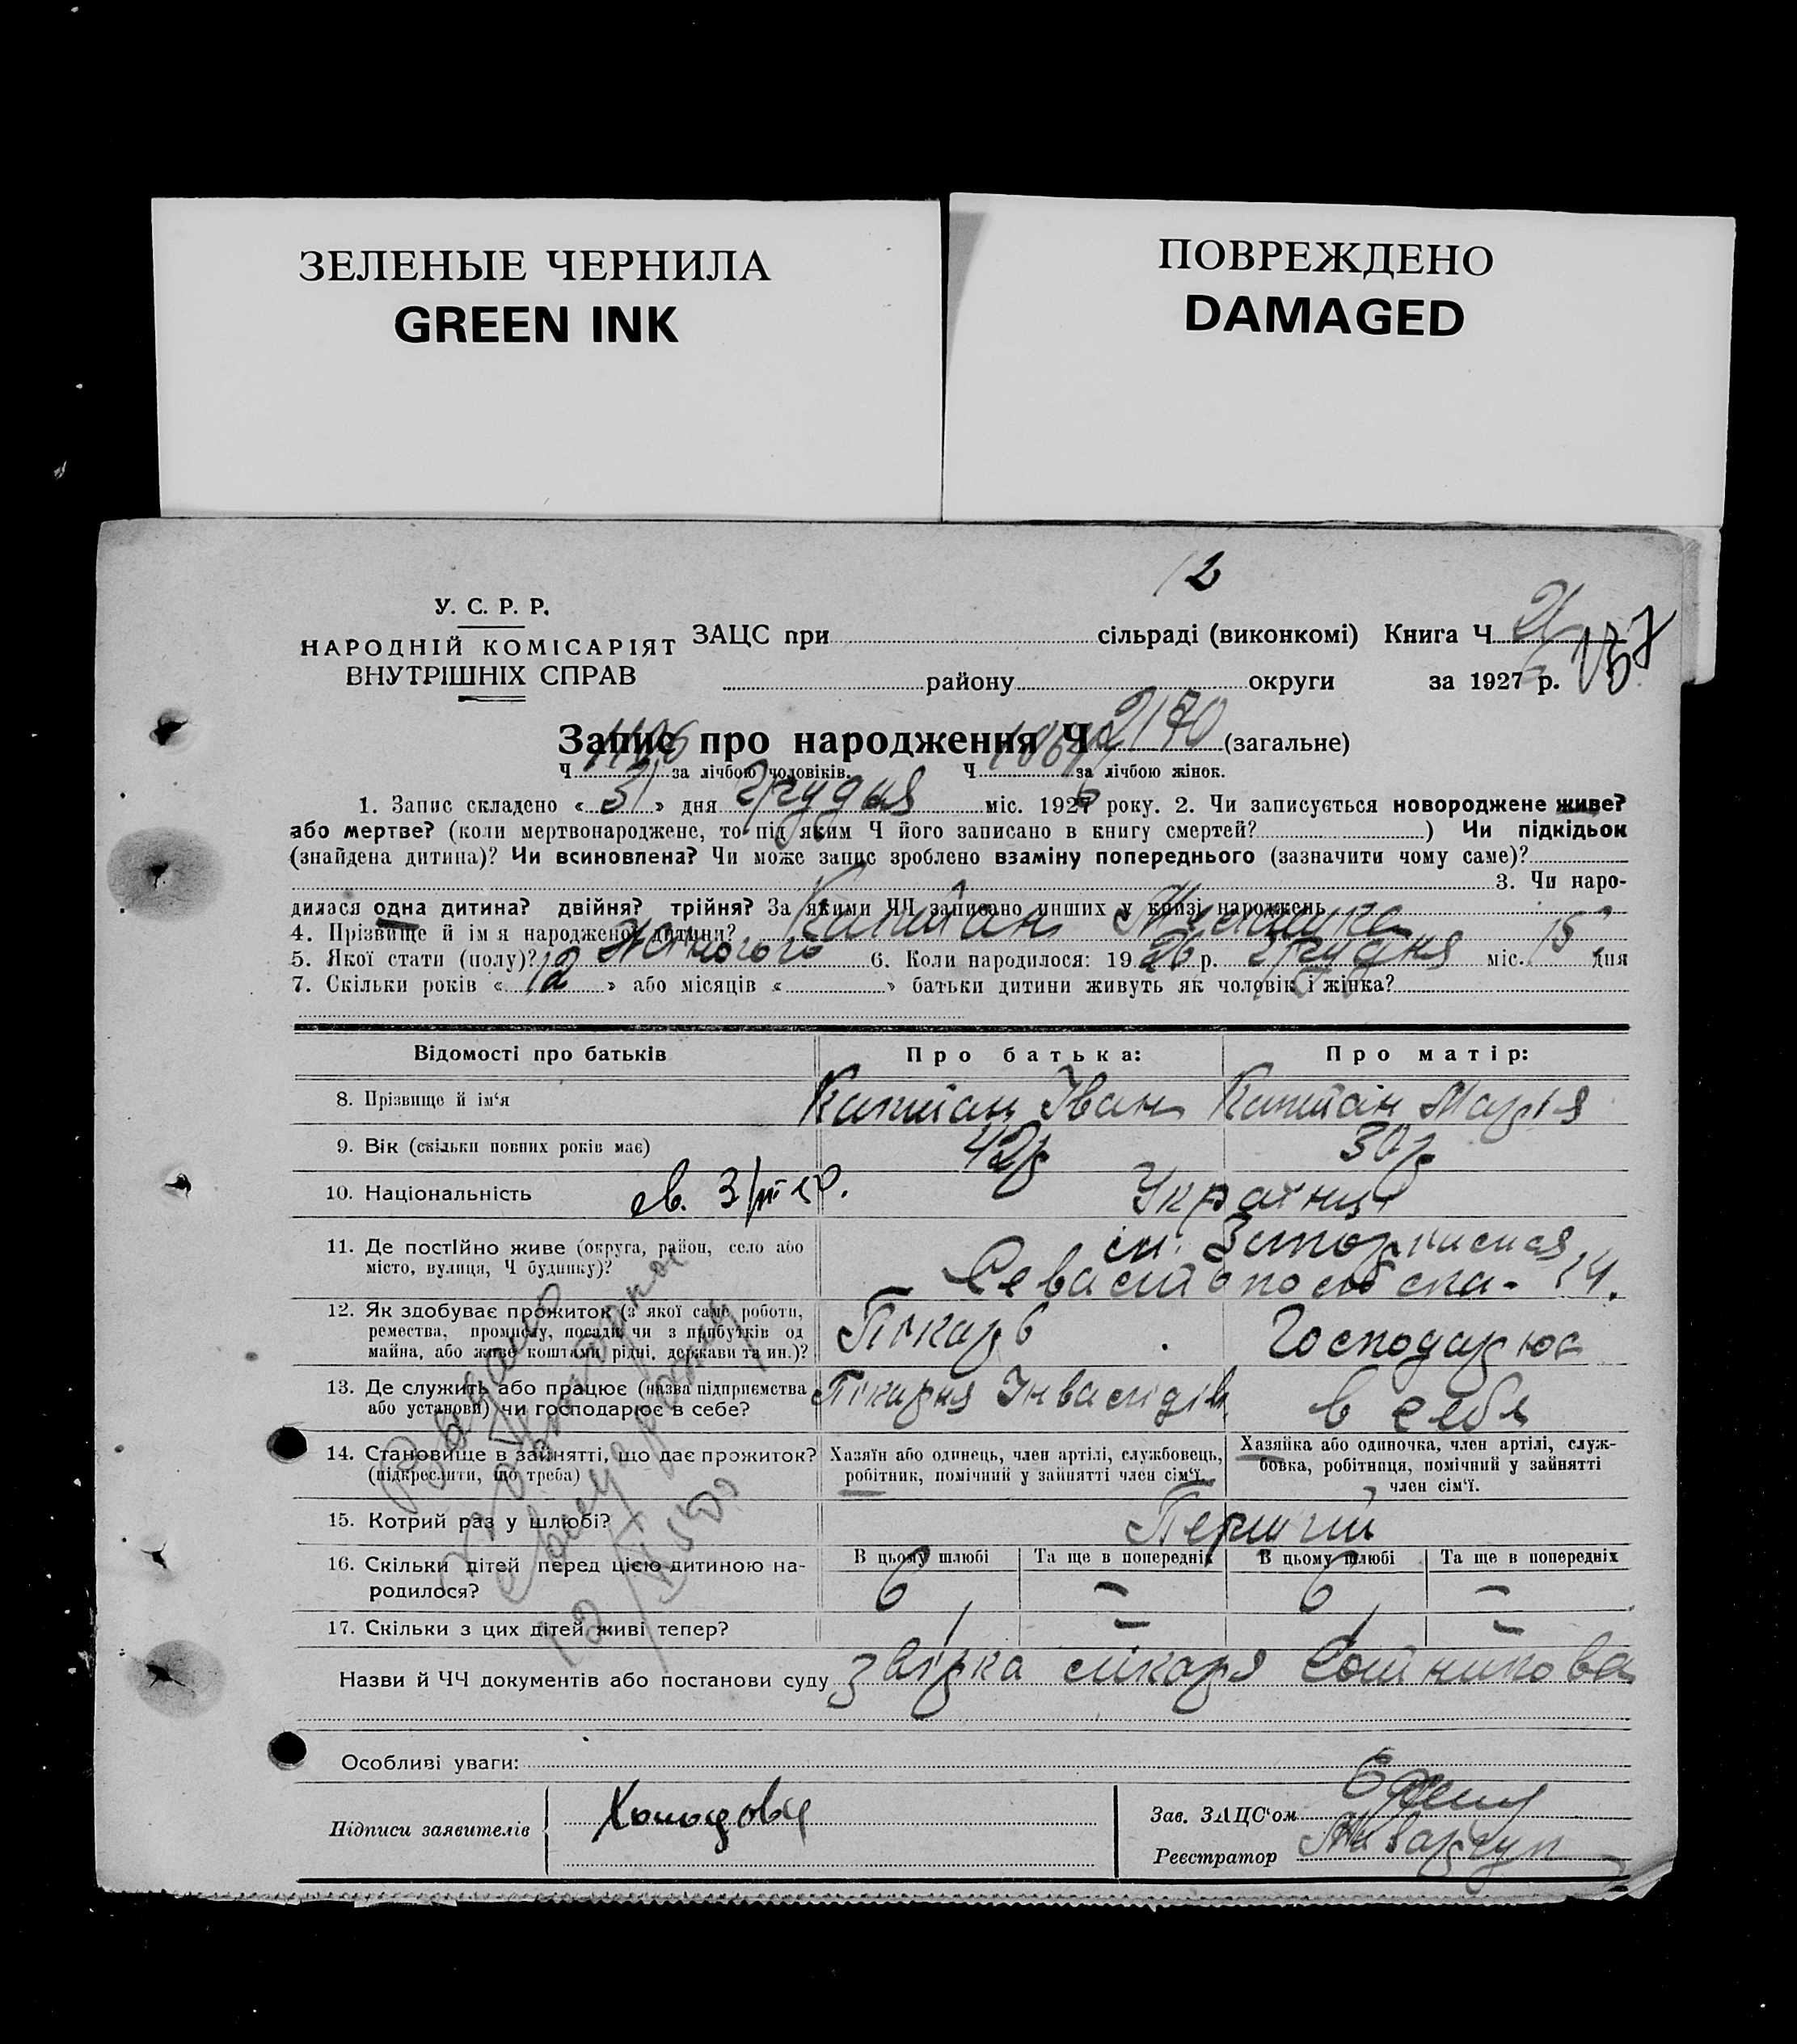 ЗЕЛЕНЫЕ ЧЕРНИЛА
GREEN INK
ПОВРЕЖДЕНО
DAMAGED
12
У. С. Р. Р.
НАРОДНІЙ КОМІСАРІЯТ
ВНУТРІШНІХ СПРАВ
ЗАЦС при сільраді (виконкомі) Книга Ч
137
району округи за 1927 р.
Запис про народження Ч 2170 (загальне)
Ч за лічбою чоловіків. Ч за лічбою жінок.
1. Запис складено « 31 » дня грудня міс. 1926 року. 2. Чи записується новороджене живе?
або мертве? (коли мертвонароджене, то під яким Ч його записано в книгу смертей? ) Чи підкідьок
(знайдена дитина)? Чи всиновлена? Чи може запис зроблено взаміну попереднього (зазначити чому саме)?
3. Чи наро-
дилася одна дитина? двійня? трійня? За якими ЧЧ записано инших у книзі народжень
4. Прізвище й ім'я народженої дитини? Капитан
5. Якої стати (полу)? Жіночого 6. Коли народилося: 1926 р. грудня міс. 15 дня
7. Скільки років « 12 » або місяців « » батьки дитини живуть як чоловік і жінка?
Відомості про батьків Про батька: Про матір:
8. Прізвище й ім'я Капитан Іван Капитан Марія
9. Вік (скільки повних років має) 42 р 30 р
10. Національність Українці
11. Де постійно живе (округа, район, село або
місто, вулиця, Ч будинку)?
Севастопольська 14.
12. Як здобуває прожиток (з якої саме роботи,
ремества, промислу, посади чи з прибутків од
майна, або живе коштами рідні, держави та ин.)?
Пекарь Господарює
13. Де служить або працює (назва підприємства
або установи) чи господарює в себе?
Пекарня Інвалідів в себе
14. Становище в зайнятті, що дає прожиток?
(підкреслити, що треба)
Хазяїн або одинець, член артілі, службовець,
робітник, помічний у зайнятті член сім'ї.
Хазяйка або одиночка, член артілі, служ-
бовка, робітниця, помічний у зайнятті
член сім'ї.
15. Котрий раз у шлюбі? Перший
16. Скільки дітей перед цією дитиною на-
родилося?
В цьому шлюбі Та ще в попередніх В цьому шлюбі Та ще в попередніх
6 – 6 –
17. Скільки з цих дітей живі тепер? 1 – 1 –
Назви й ЧЧ документів або постанови суду лікаря
Особливі уваги:
Підписи заявителів
Зав. ЗАЦС'ом
Реєстратор